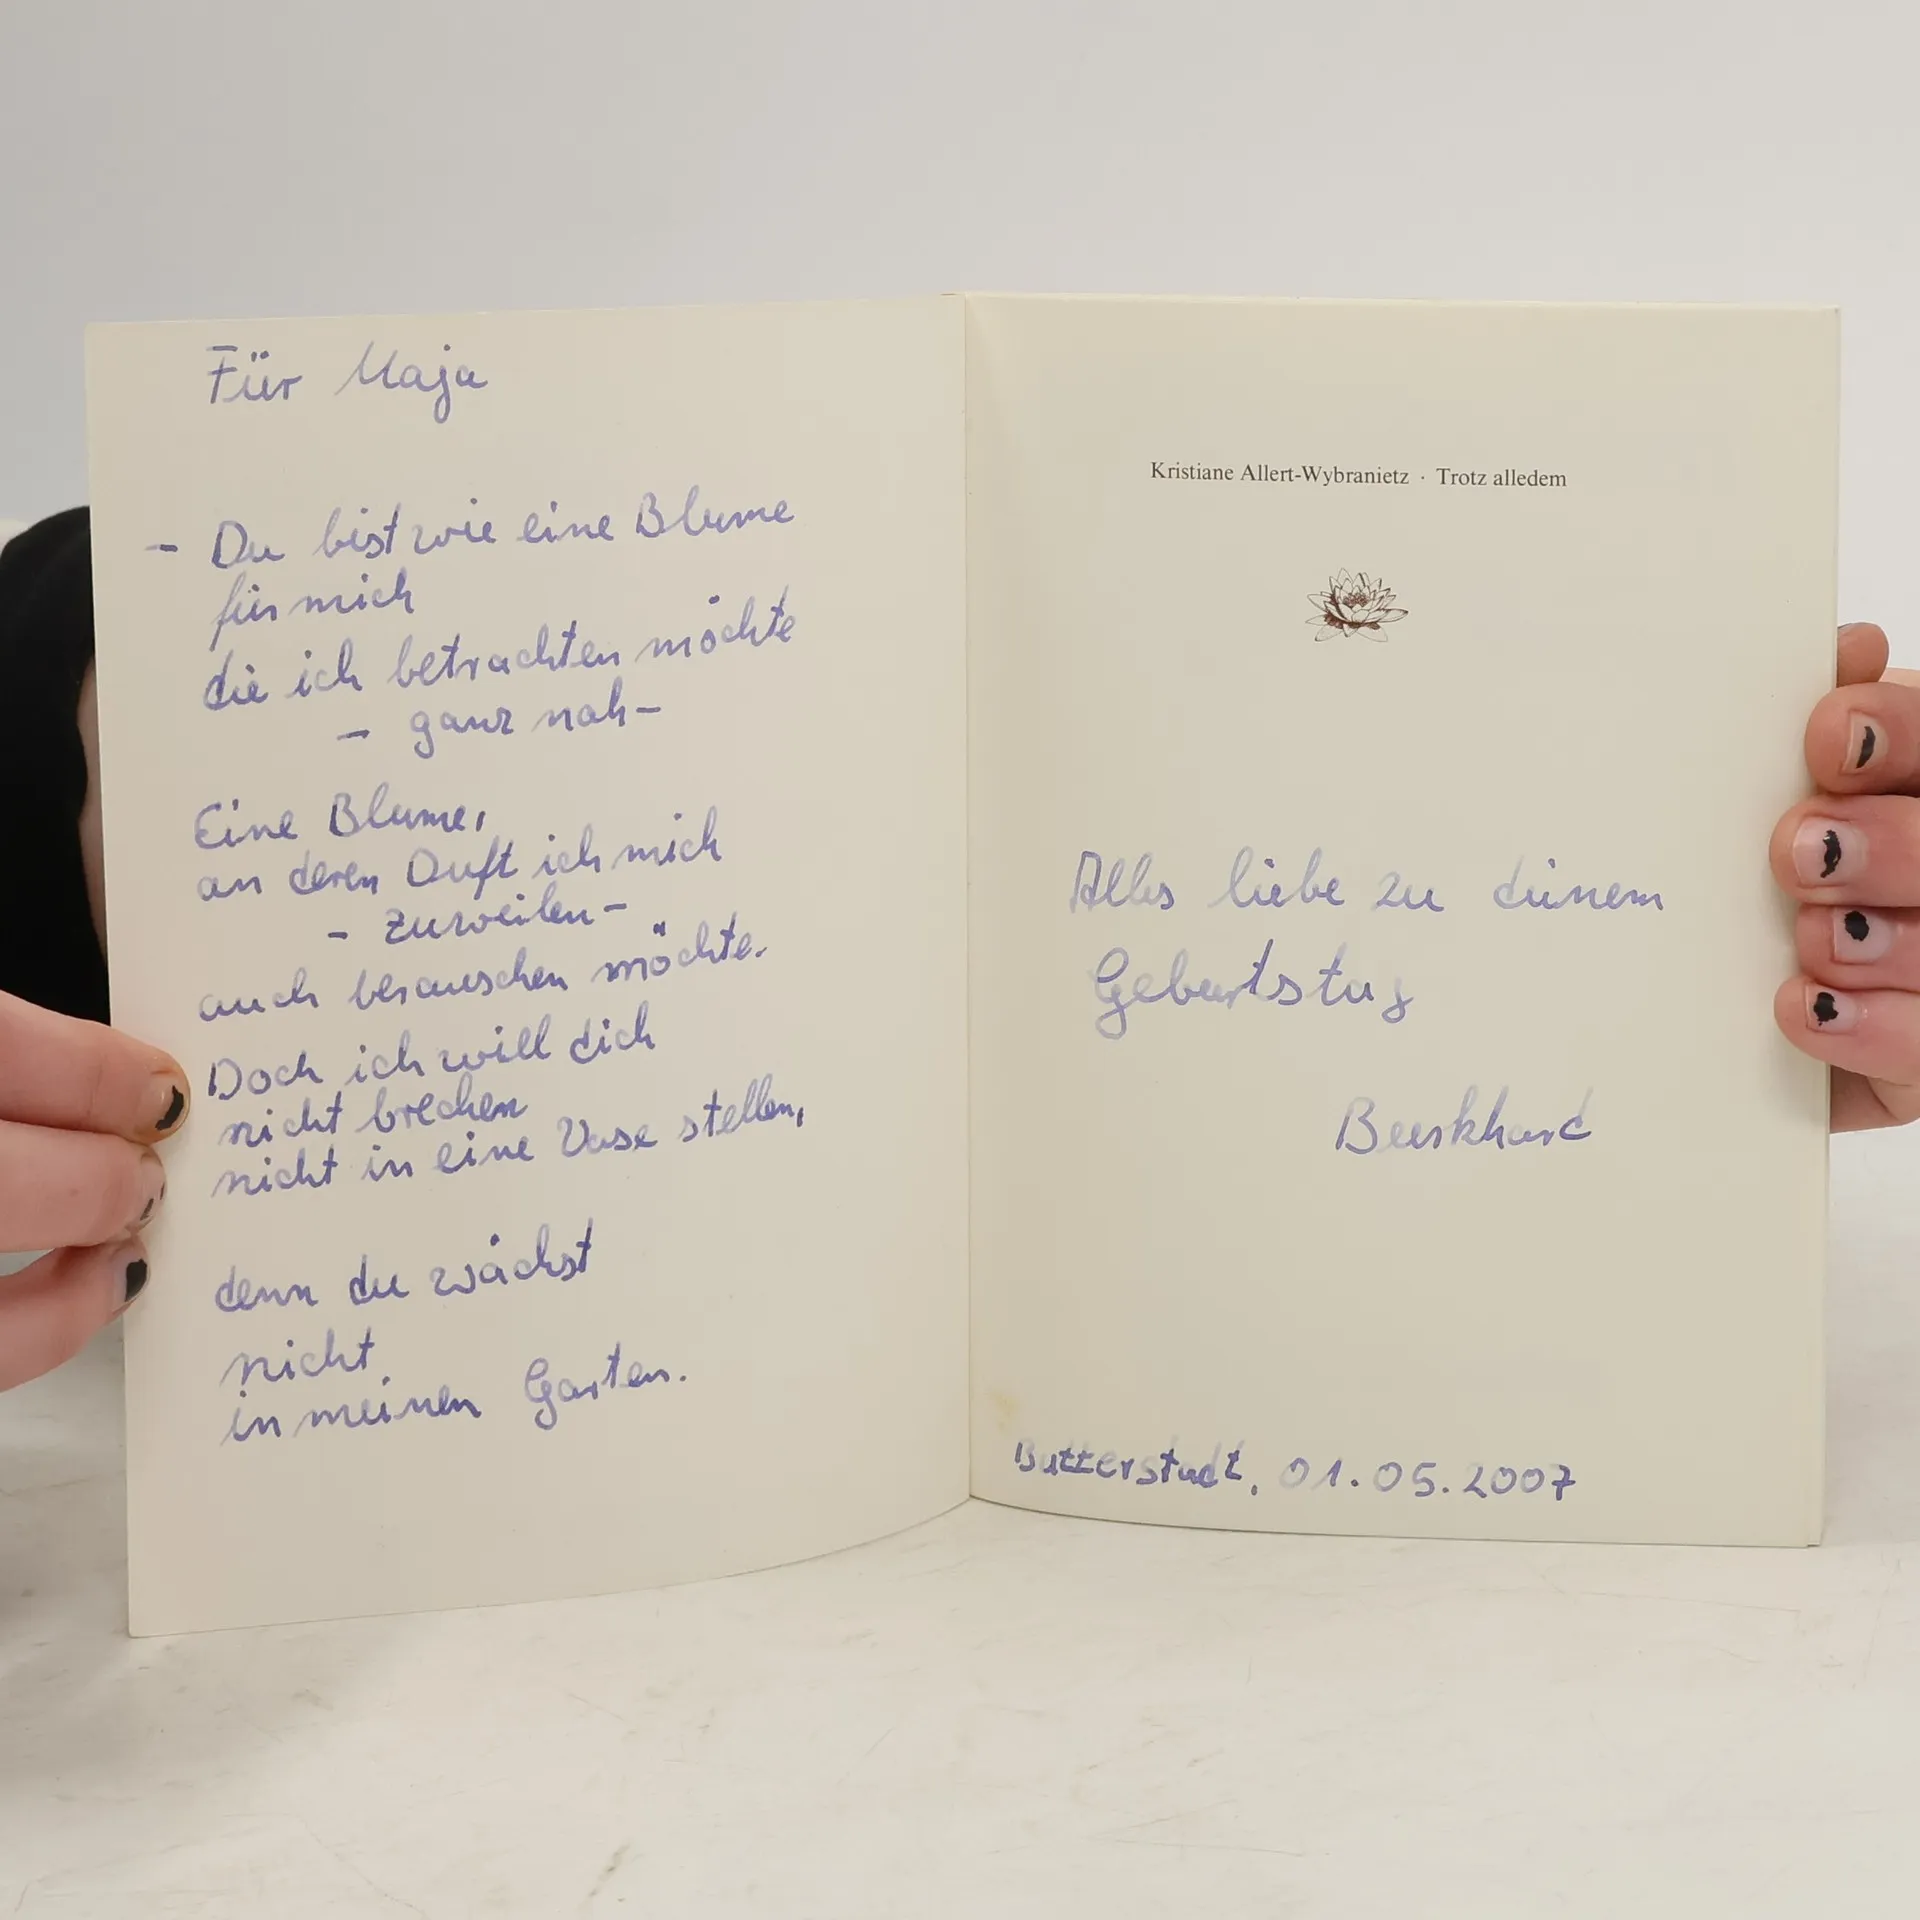 Für Maja
- Du bist wie eine Blume
für mich
die ich betrachten möchte
- ganz nah -
Eine Blume,
an deren Duft ich mich
- zuweilen -
auch berauschen möchte.
Doch ich will dich
nicht brechen
nicht in eine Vase stellen,
denn du wächst
nicht
in meinen Garten.
Kristiane Allert-Wybranietz · Trotz alledem
Alles liebe zu deinem
Geburtstag
Burkhard
Butterstadt, 01.05.2007